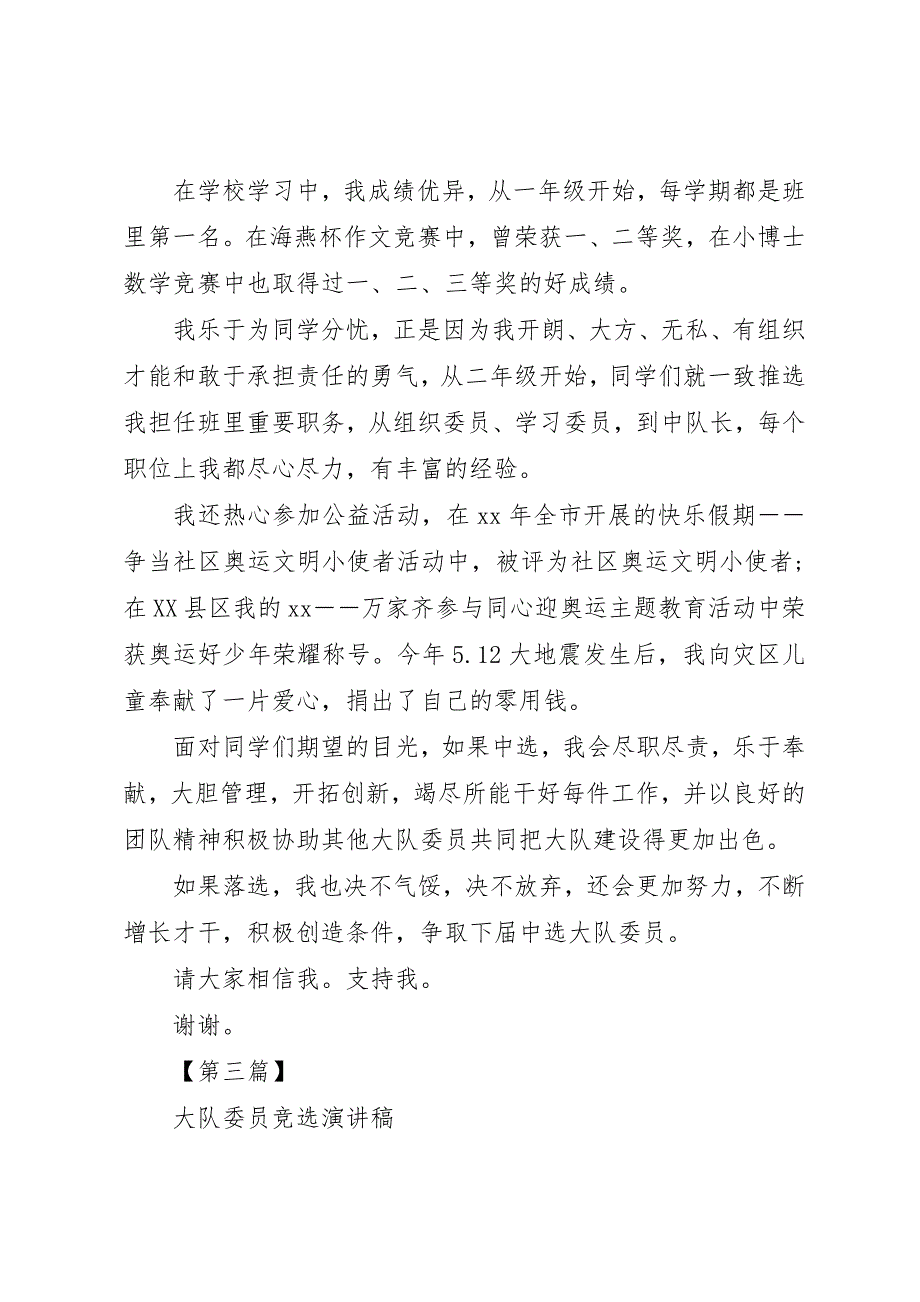 在学校学习中，我成绩优异，从一年级开始，每学期都是班
里第一名。在海燕杯作文竞赛中，曾荣获一、二等奖，在小博士
数学竞赛中也取得过一、二、三等奖的好成绩。
我乐于为同学分忧，正是因为我开朗、大方、无私、有组织
才能和敢于承担责任的勇气，从二年级开始，同学们就一致推选
我担任班里重要职务，从组织委员、学习委员，到中队长，每个
职位上我都尽心尽力，有丰富的经验。
我还热心参加公益活动，在 xx 年全市开展的快乐假期――
争当社区奥运文明小使者活动中，被评为社区奥运文明小使者;
在 XX 县区我的 xx――万家齐参与同心迎奥运主题教育活动中荣
获奥运好少年荣耀称号。今年 5.12 大地震发生后，我向灾区儿
童奉献了一片爱心，捐出了自己的零用钱。
面对同学们期望的目光，如果中选，我会尽职尽责，乐于奉
献，大胆管理，开拓创新，竭尽所能干好每件工作，并以良好的
团队精神积极协助其他大队委员共同把大队建设得更加出色。
如果落选，我也决不气馁，决不放弃，还会更加努力，不断
增长才干，积极创造条件，争取下届中选大队委员。
请大家相信我。支持我。
谢谢。
【第三篇】
大队委员竞选演讲稿